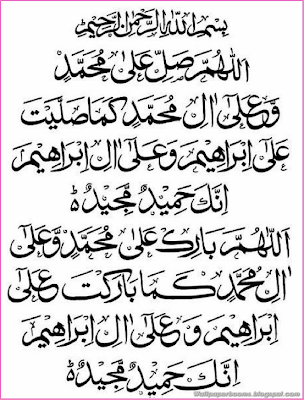 بِسْمِ اللهِ الرَّحْمٰنِ الرَّحِيْمِ
اَللّٰهُمَّ صَلِّ عَلٰى مُحَمَّدٍ
وَّعَلٰٓى اٰلِ مُحَمَّدٍ كَمَا صَلَّيْتَ
عَلٰٓى اِبْرَاهِيْمَ وَعَلٰٓى اٰلِ اِبْرَاهِيْمَ
اِنَّكَ حَمِيْدٌ مَّجِيْدٌ ؕ
اَللّٰهُمَّ بَارِكْ عَلٰى مُحَمَّدٍ وَّعَلٰٓى
اٰلِ مُحَمَّدٍ كَمَا بَارَكْتَ عَلٰٓى
اِبْرَاهِيْمَ وَعَلٰٓى اٰلِ اِبْرَاهِيْمَ
اِنَّكَ حَمِيْدٌ مَّجِيْدٌ ؕ
Wallpaperbooms.blogspot.com